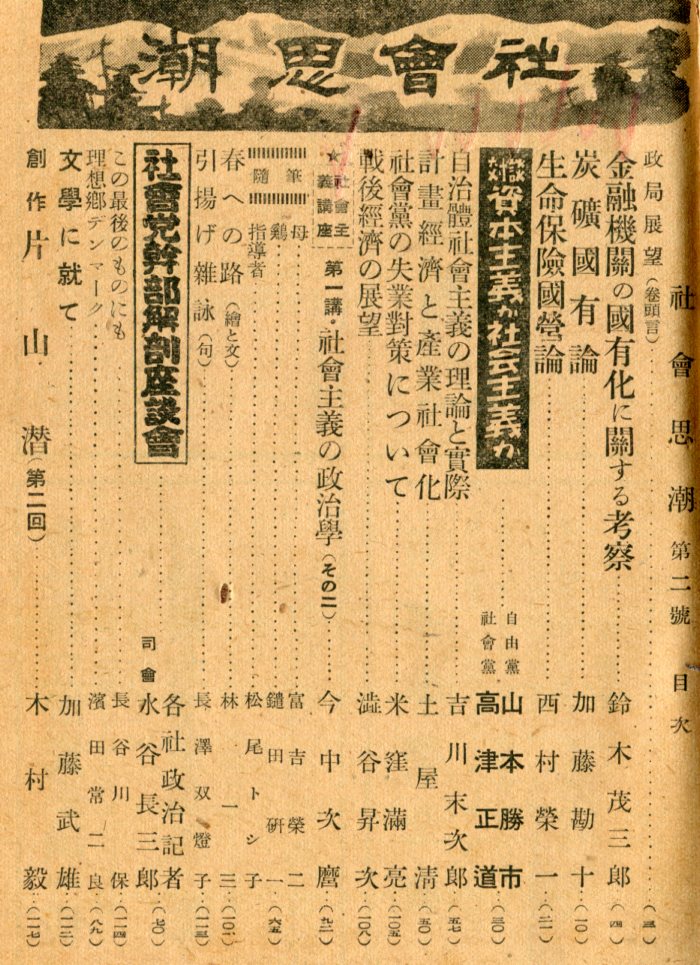 社會思潮
社會思潮 第二號 目次
政局展望（卷頭言）……（三）
金融機關の國有化に關する考察……鈴木茂三郎（四）
炭礦國有論……加藤勘十（一〇）
生命保險國營論……西村榮一（二一）
資本主義か社会主義か 自由黨 山本勝市 社會黨 高津正道（三〇）
自治體社會主義の理論と實際……吉川末次郎（五七）
計畫經濟と產業社會化……土屋清（五〇）
社會黨の失業對策について……米窪滿亮（一〇五）
戰後經濟の展望……澁谷昇次（一〇八）
★社會主義講座 第一講・社會主義の政治學（その二）……今中次麿（九二）
隨筆
母……富吉榮二
鷄……鑓田研一（六五）
指導者……松尾トシ子
春への路（繪と文）……林一三（一〇二）
引揚げ雜詠（句）……長澤双燈子（一一三）
社會党幹部解剖座談會 各社政治記者 司會 水谷長三郎（七〇）
この最後のものにも……長谷川保（一一四）
理想鄉デンマーク……濱田常二良（八九）
文學に就て……加藤武雄（一一二）
創作 片山潜（第二回）……木村毅（一一七）